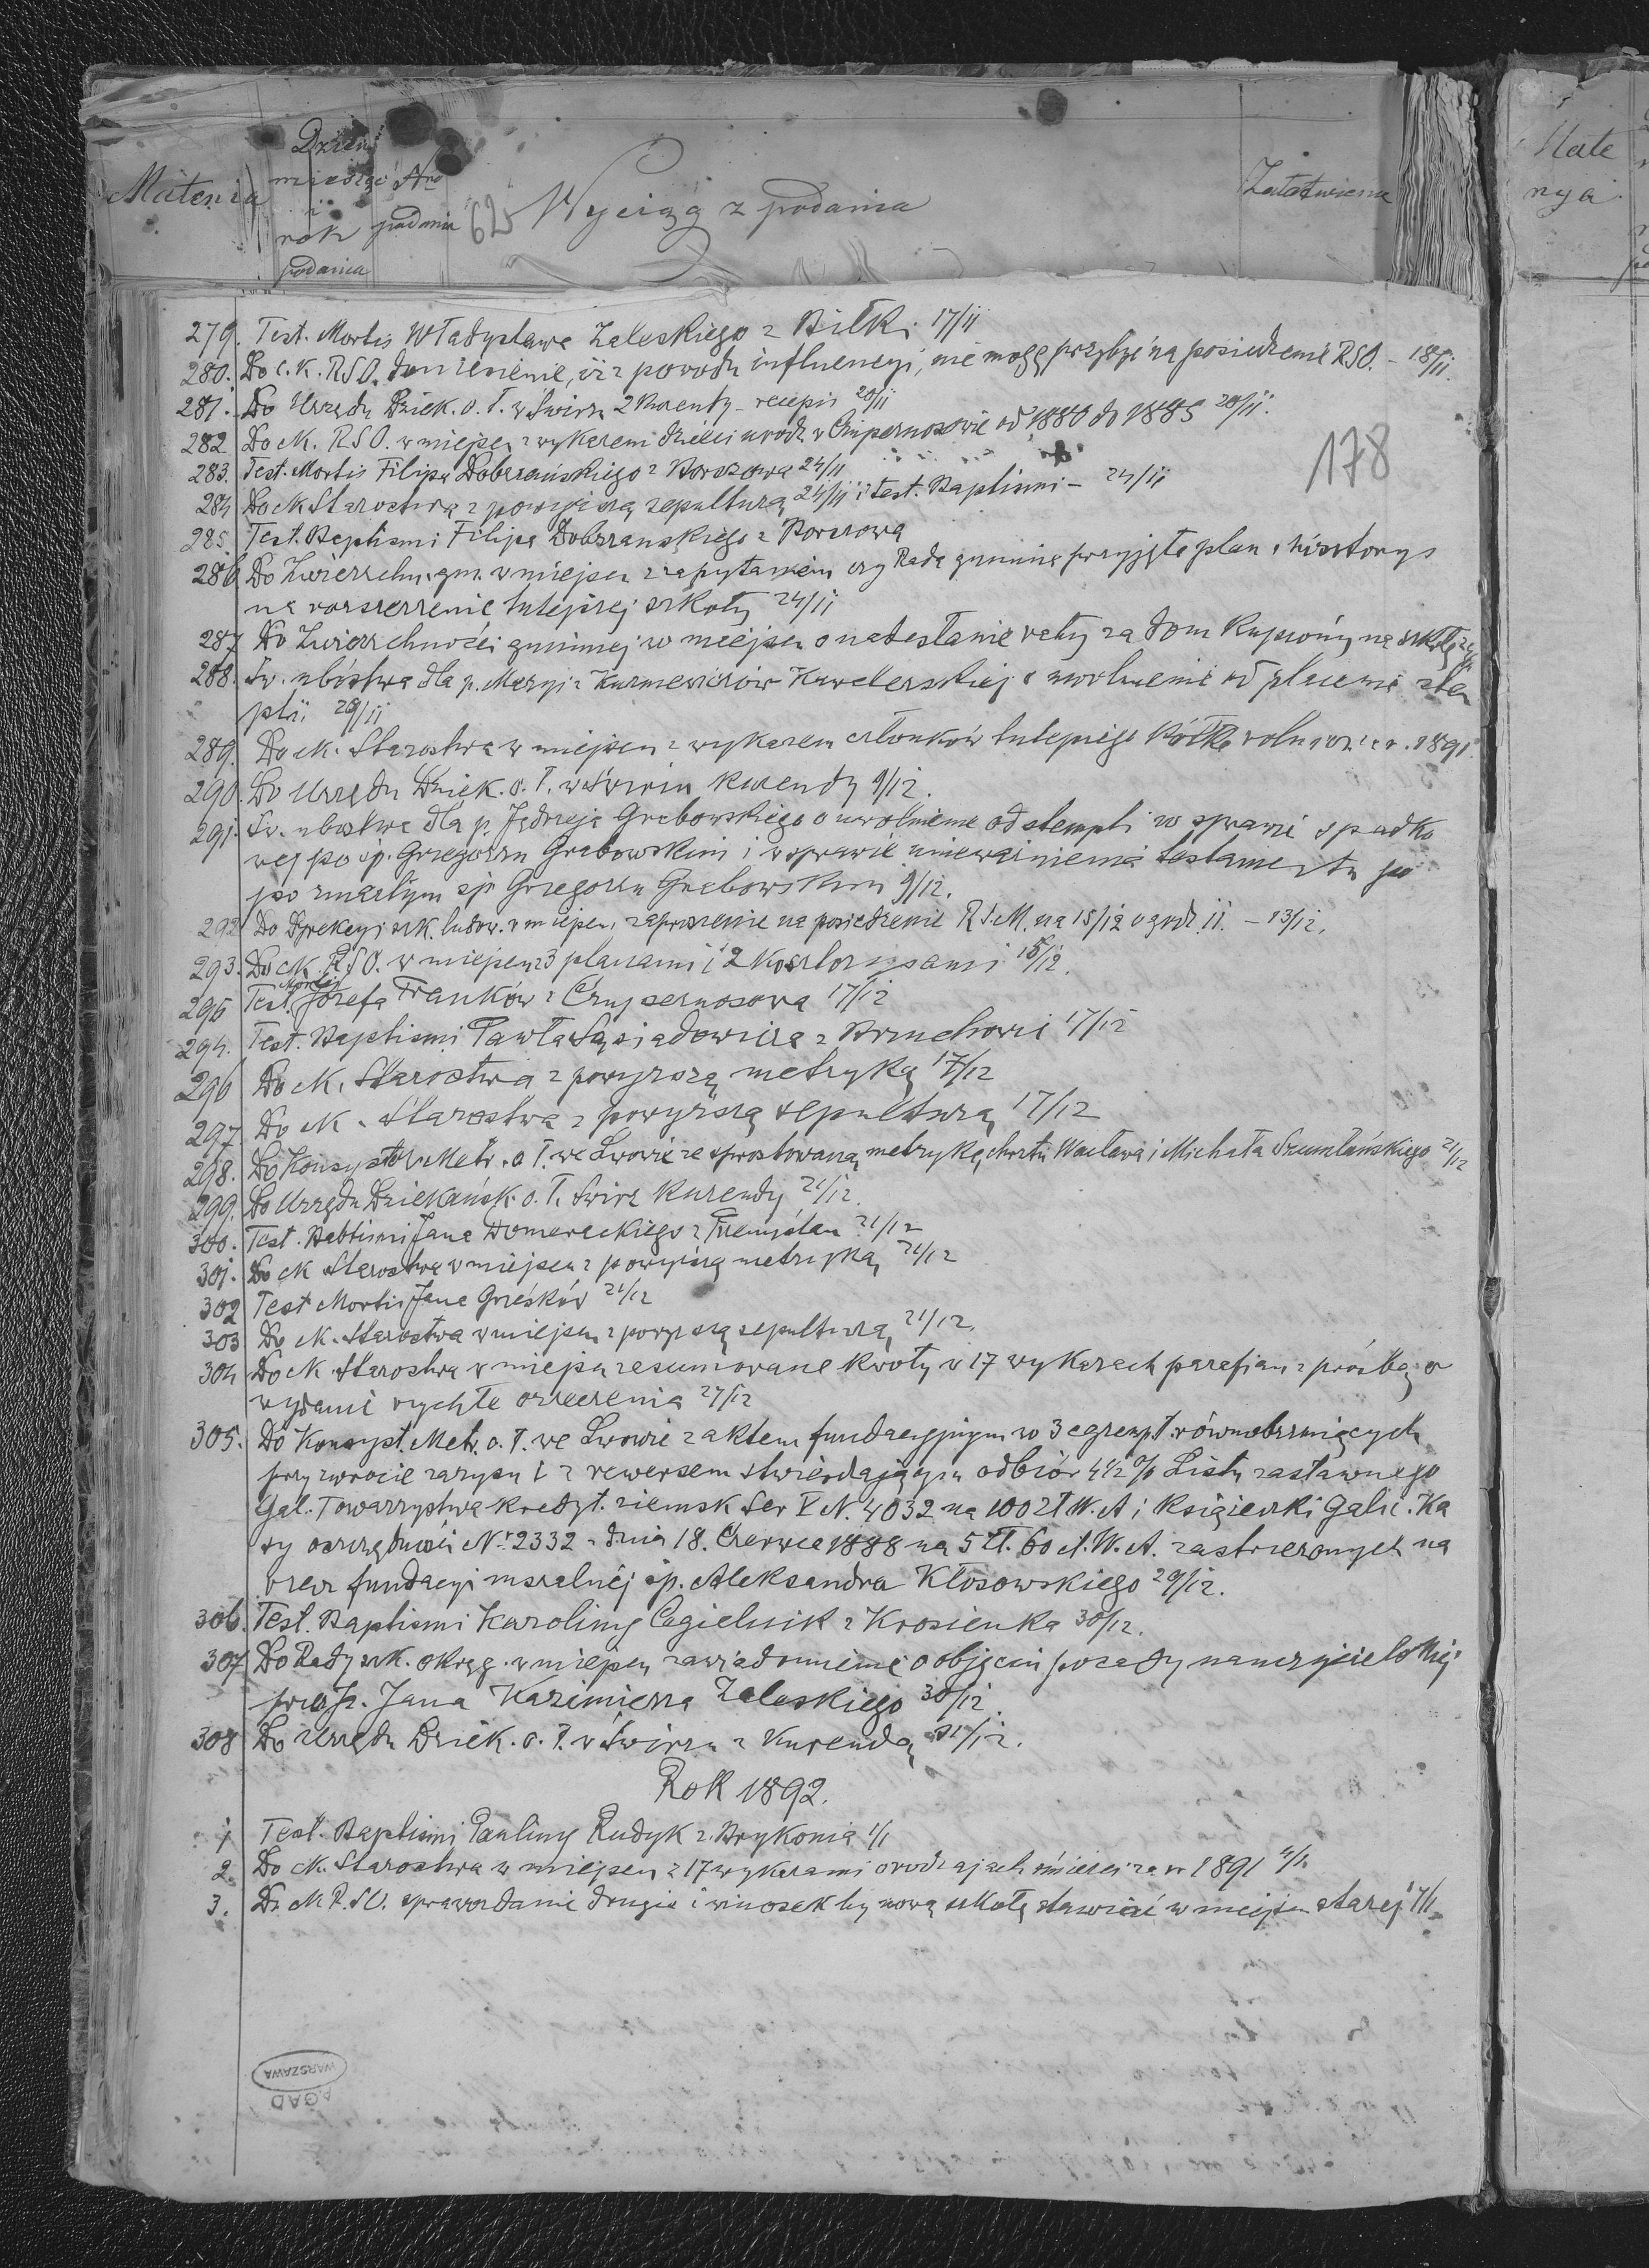 Materia
Dzień
miesiąc
i
rok
podania
Nro
podania
62
Wyciąg z podania
Załatwienie
Mate
rya
178
279. Test. Mortis Władysława Zaleskiego z Biłki 17/11
280. Do c. k. RSO. doniesienie, iż z powodu influencyi, nie mogę przybyć na posiedzenie RSO. - 18/11.
281. Do Urzędu Dziek. o. ł. w Świrzu 2 kurendy - recepis 20/11
282. Do ck. RSO. w miejscu z wykazem dzieci urodz. w Czupernosowie od 1880 do 1885 20/11.
283. Test. Mortis Filipa Dobrzańskiego z Borszowa 24/11
284 Do ck Starostwa z powyższą sepulturą 24/11 i test. Baptismi - 24/11
285. Test. Baptismi Filipa Dobrzanskiego z Borszowa
286 Do Zwierzchn. gm. w miejscu z zapytaniem czy Rada gminna przyjęła plan i kosztorys
na rozszerzenie tutejszej szkoły 24/11
287 Do Zwierzchności gminnej w miejscu o nadesłanie raty za dom kupiony na szkołę
288. Św. ubóstwa dla p. Maryi z Kurmewiczów Kawelerskiej o uwolnienie od płacenia stem
pli. 28/11
289. Do ck. Starostwa w miejscu z wykazem członków tutejszego Kółka roln. za r. 1891.
290. Do Urzędu Dziek. o. ł. w Świrzu kurendy 9/12.
291. Św. ubóstwa dla p. Jędrzeja Grabowskiego o uwolnienie od stempli w sprawie spadko
wej po śp. Grzegorzu Grabowskim i w sprawie unieważnienia testamentu po
po zmarłym śp Grzegorzu Grabowskim 9/12.
292 Do Dyrekcyi szk. ludow. w miejscu, zaproszenie na posiedzenie RSM. na 15/12 o godz. 11. - 13/12.
293. Do ck. RSO. w miejscu z 3 planami i 2 kosztorysami 15/12.
295 Test. Mortis Józefa Franków z Czupernosowa 17/12
294. Test. Baptismi Pawła Sąsiadowicza z Brzuchowic 17/12
296 Do ck. Starostwa z powyższą metryką 17/12
297. Do ck. Starostwa z powyższą sepulturą 17/12
298. Do Konsystor. Metr. o. ł. we Lwowie ze sprostowaną metryką chrztu Wacława i Michała Szumlańskiego 21/12
299. Do Urzędu Dziekańsk. o. ł. Świrz kurendy 21/12.
300. Test. Babtismi Jana Domerackiego z Przemyślan 21/12
301. Do ck Starostwa w miejscu z powyższą metryką 21/12
302 Test Mortis Jana Grześków 21/12
303 Do ck. Starostwa w miejscu z powyższą sepulturą 21/12.
304 Do ck Starostwa w miejscu zesumowane kwoty w 17 wykazach parafian z prośbą o
wydanie rychłe orzeczenia 27/12
305. Do Konsyst. Metr. o. ł. we Lwowie z aktem fundacyjnym w 3 egzempl. równobrzmiących
przy zwrocie zarysu i z rewersem stwierdzającym odbiór 4 1/2 % Listu zastawnego
Gal. Towarzystwa kredyt. ziemsk Ser V N. 4032 na 100 zł W. A i książeczki Galic. Ka
sy oszczędności Nr. 2332 z dnia 18. Czerwca 1888 na 5 zł. 60 ct. W. A. zastrzeżonych na
rzecz fundacyi mszalnéj śp. Aleksandra Kłosowskiego 29/12.
306. Test. Baptismi Karoliny Cegielnik z Krosienka 30/12.
307 Do Rady szk. okręg. w miejscu zawiadomienie o objęciu posady nauczycielskiej
przez p. Jana Kazimierza Zaleskiego 30/12.
308 Do Urzędu Dziek. o. ł. w Świrzu z Kurendą 31/12.
Rok 1892.
1 Test. Baptismi Pauliny Rudyk z Brykonia 1/1
2. Do ck. Starostwa w miejscu z 17 wykazami o rodzajach śmierci za r 1891 4/1.
3. Do ck RSO. sprawozdanie drugie i wniosek by nową szkołę stawiać w miejscu starej 7/1
WARSZAWA
AGAD